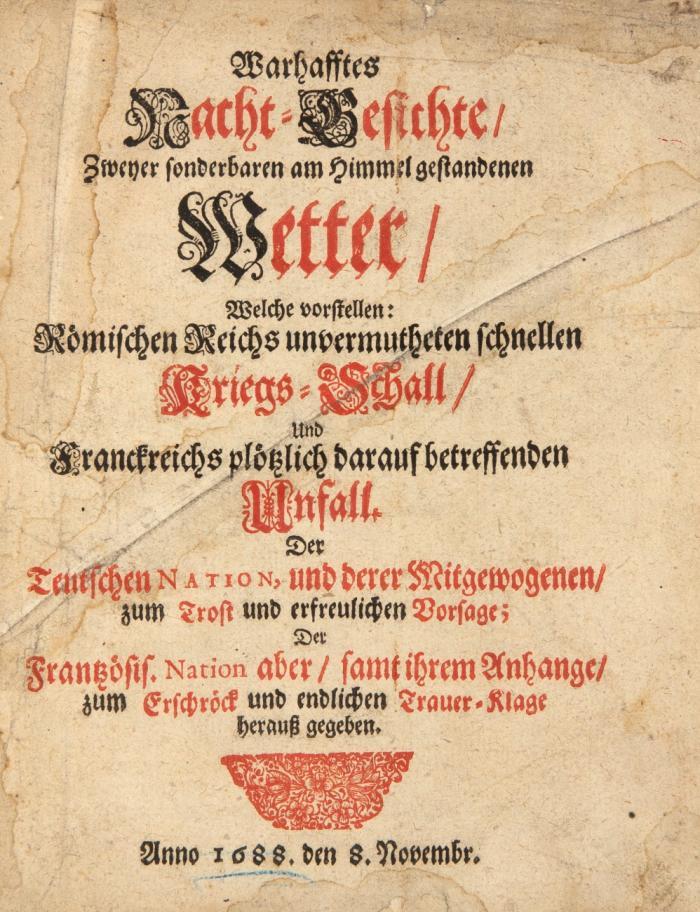 Warhafftes
Nacht-Gesichte/
Zweyer sonderbaren am Himmel gestandenen
Wetter/
Welche vorstellen:
Römischen Reichs unvermutheten schnellen
Kriegs-Schall/
Und
Franckreichs plötzlich darauf betreffenden
Unfall.
Der
Teutschen NATION, und derer Mitgewogenen/
zum Trost und erfreulichen Vorsage;
Der
Frantzösis. Nation aber/ samt ihrem Anhange/
zum Erschröck und endlichen Trauer-Klage
herauß gegeben.
Anno 1688. den 8. Novembr.